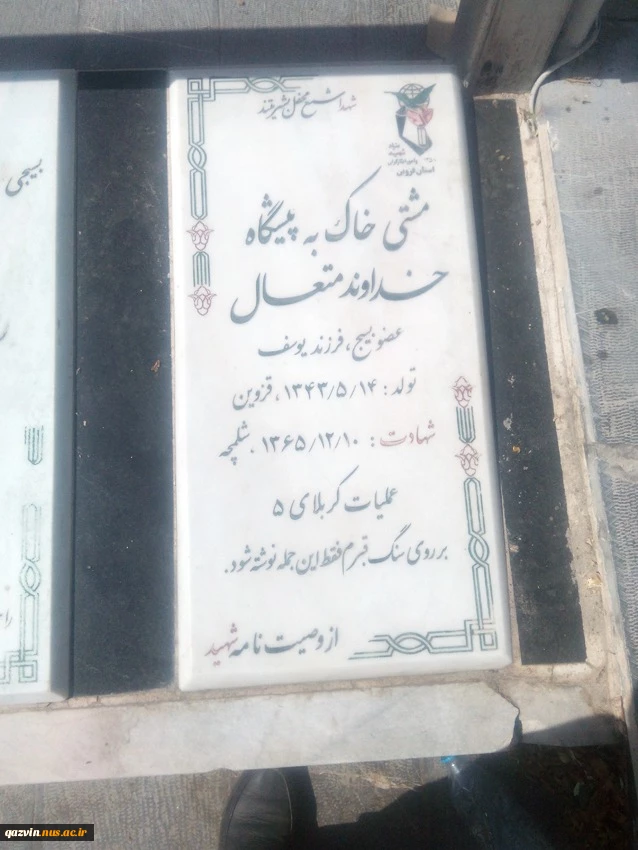 شهدا شمع محفل بشریتند
بنیاد
شهید
وامور ایثارگران
استان قزوین
مشتی خاک به پیشگاه
خداوند متعال
عضو بسیج، فرزند یوسف
تولد: ۱۳۴۳/۵/۱۴، قزوین
شهادت: ۱۳۶۵/۱۲/۱۰، شلمچه
عملیات کربلای ۵
بر روی سنگ قبرم فقط این جمله نوشته شود.
از وصیت نامه شهید
بسیجی
qazvin.nus.ac.ir